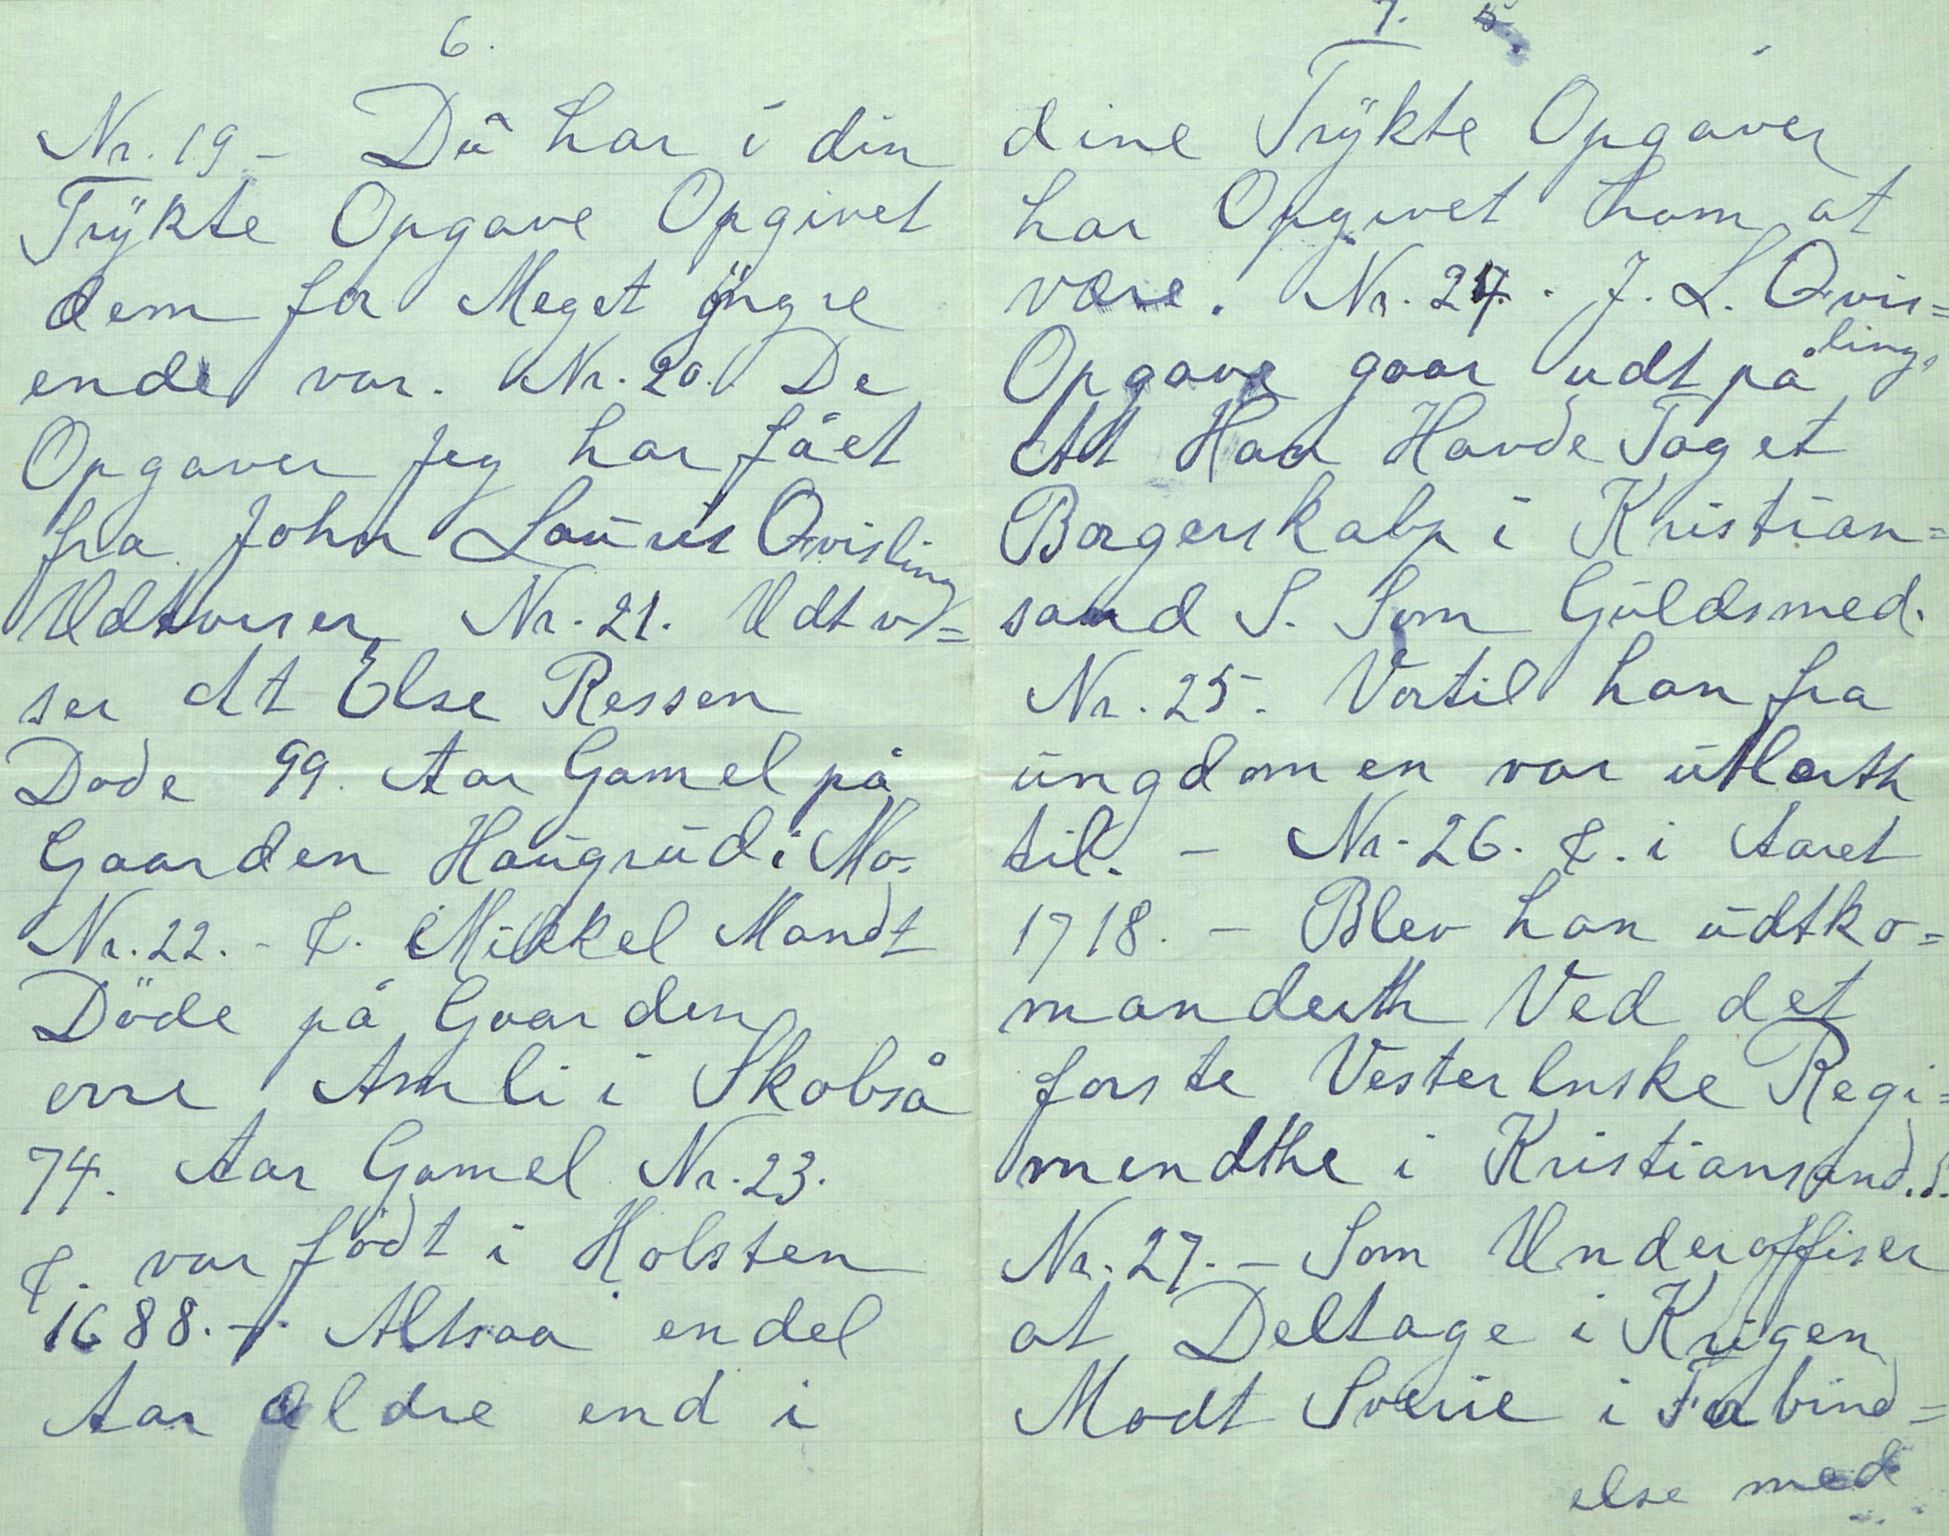 6.
Nr. 19 - Dū har i din
Trÿkte Opgave Opgivet
dem for Meget ÿngre
ende var. Nr. 20. De
Opgaver Jeg har fået
fra John Laūris Qvisling
Udtviser Nr. 21. Udtvi=
ser At Else Ressen
Dode 99. Aar Gamel på
Gaarden Haūgrūd i Mo.
Nr. 22. - &. Mikkel Mandt
Döde på Gaarden
Amli i Skobså
74. Aar Gamel Nr. 23.
&. var födt i Holsten
1688. - Altsaa endel
Aar Eldre end i
7.
dine Trÿkte Opgaver
har Opgivet ham at
være. Nr. 24. J. L. Qvis=
lings
Opgave gaar udt på
At Han Havde Taget
Borgerskabp i Kristian=
sand S. Som Gūldsmed.
Nr. 25. Vortil han fra
ūngdomen var ūtlærth
til. - Nr. 26. &. i Aaret
1718. - Blev han ūdtko=
manderth Ved det
forste Vesterlnske Regi=
mendthe i Kristiansand. S.
Nr. 27. - Som Underoffiser
at Deltage i Krigen
Modt Sverie i Forbind=
else med